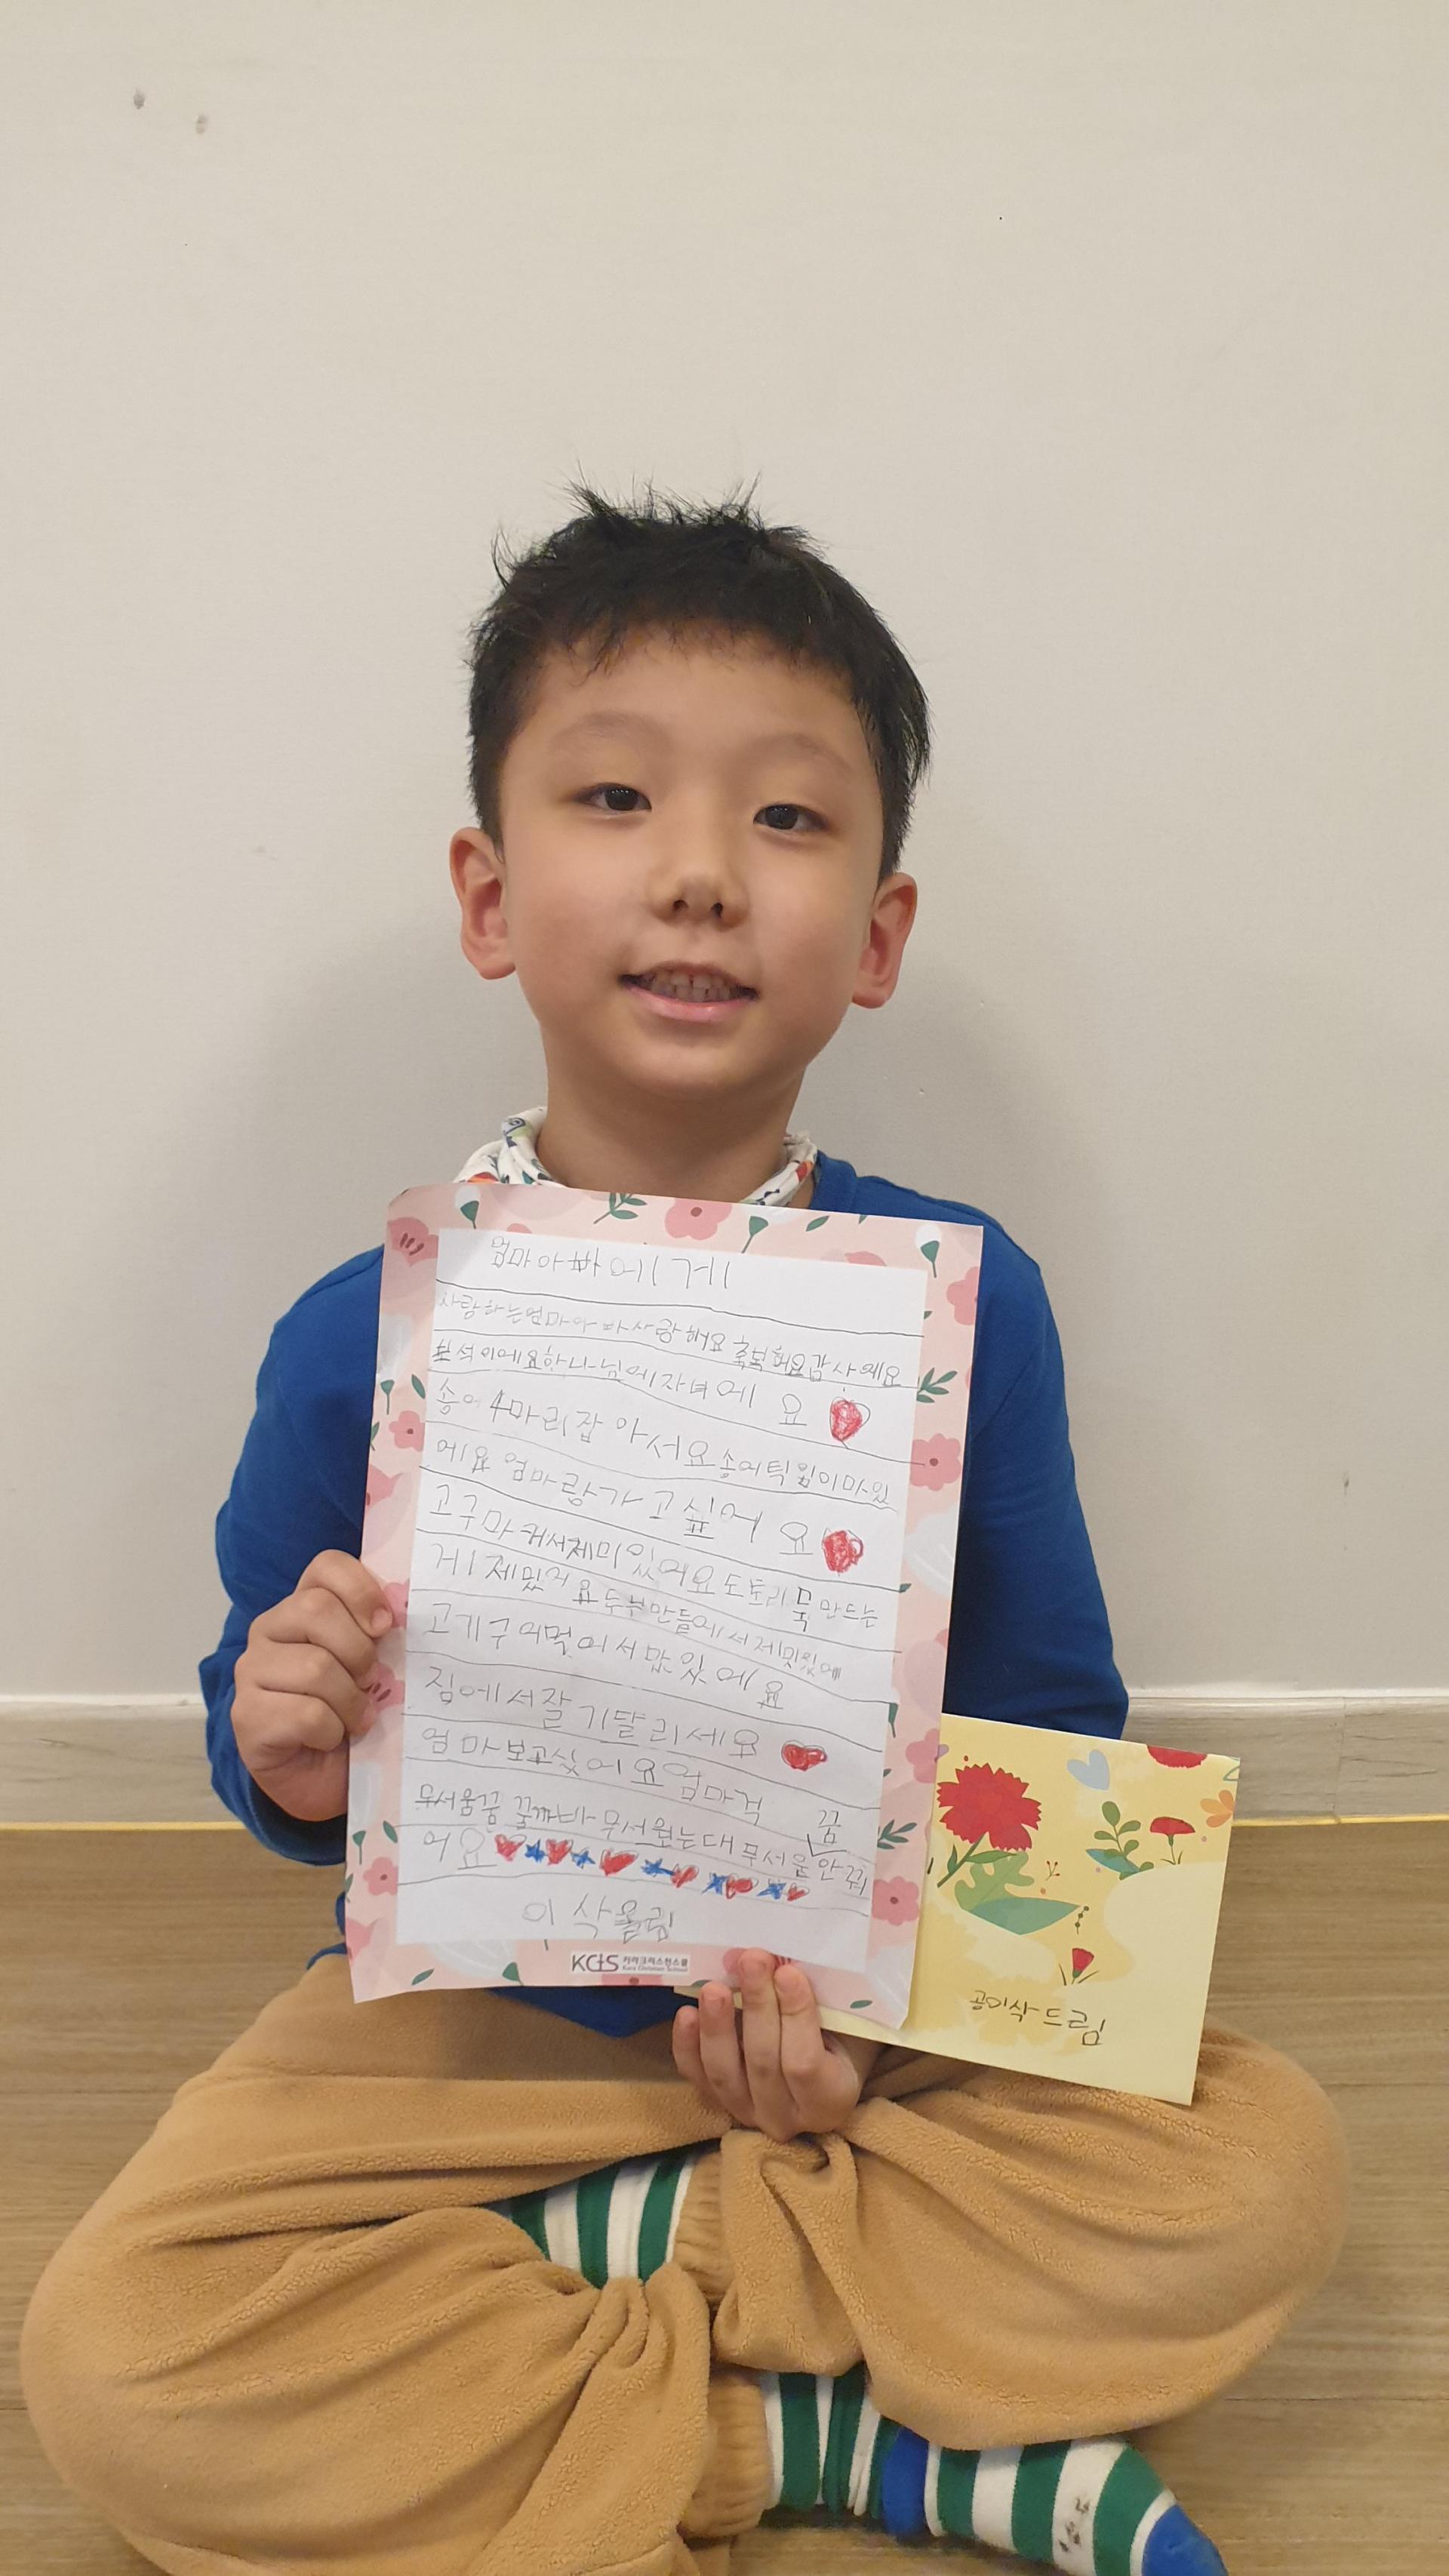 엄마아빠에게
사랑하는엄마아빠사랑해요 축복해요감사해요
석이에요하나님에자녀에요
송어4마리잡아서요송어틱김이마있
에요 엄마랑가고싶어요
고구마캐서제미있어요도토리묵만드는
게제밌어요두부만들에서제밋있에
고기구어먹어서맙있에요
짐에서잘기달리세요
엄마보고싶어요엄마걱
무서움꿈꿀까바무서원는대무서울꿈안꿔
어요
이삭올림
KCtS 카라크리스천스쿨
Kara Christian School
공이삭드림